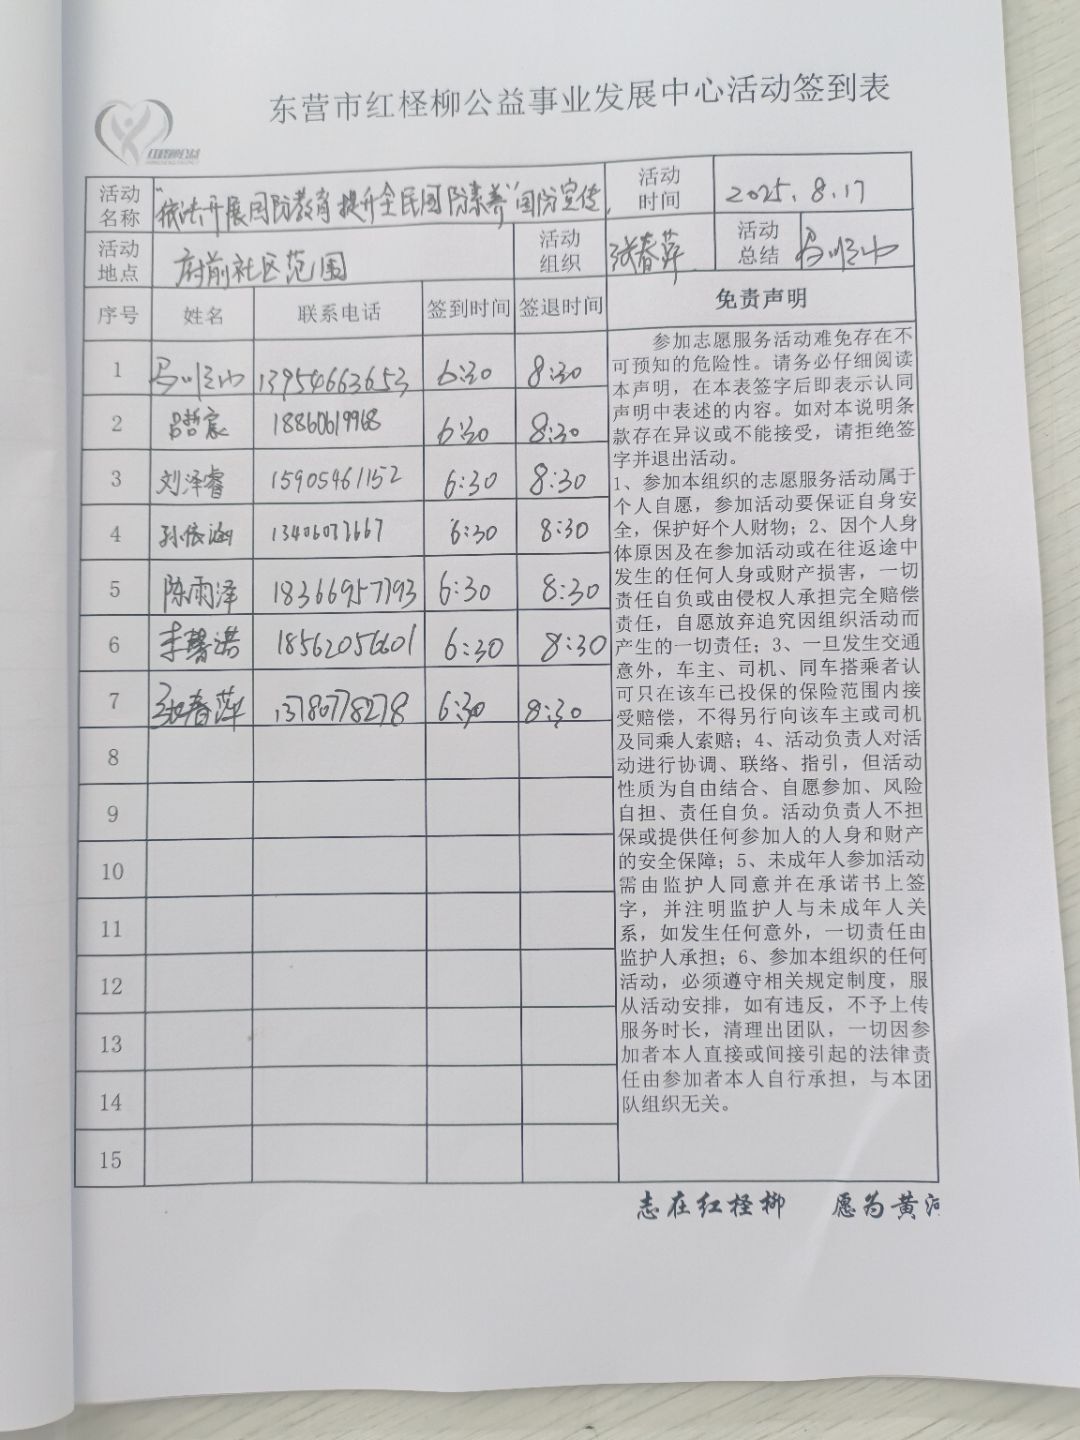 东营市红柽柳公益事业发展中心活动签到表
红柽柳公益
活动名称 "依法开展国防教育 提升全民国防素养"国防宣传 活动时间 2025.8.17
活动地点 府前社区范围 活动组织 张春萍 活动总结
序号 姓名 联系电话 签到时间 签退时间 免责声明
1 13954663653 6:30 8:30
2 吕哲宸 18860619968 6:30 8:30
3 刘泽睿 15905461152 6:30 8:30
4 孙依涵 13406077667 6:30 8:30
5 陈雨泽 18366957793 6:30 8:30
6 李馨湛 18562056601 6:30 8:30
7 张春萍 13780778278 6:30 8:30
8
9
10
11
12
13
14
15
参加志愿服务活动难免存在不
可预知的危险性。请务必仔细阅读
本声明，在本表签字后即表示认同
声明中表述的内容。如对本说明条
款存在异议或不能接受，请拒绝签
字并退出活动。
1、参加本组织的志愿服务活动属于
个人自愿，参加活动要保证自身安
全，保护好个人财物；2、因个人身
体原因及在参加活动或在往返途中
发生的任何人身或财产损害，一切
责任自负或由侵权人承担完全赔偿
责任，自愿放弃追究因组织活动而
产生的一切责任；3、一旦发生交通
意外，车主、司机、同车搭乘者认
可只在该车已投保的保险范围内接
受赔偿，不得另行向该车主或司机
及同乘人索赔；4、活动负责人对活
动进行协调、联络、指引，但活动
性质为自由结合、自愿参加、风险
自担、责任自负。活动负责人不担
保或提供任何参加人的人身和财产
的安全保障；5、未成年人参加活动
需由监护人同意并在承诺书上签
字，并注明监护人与未成年人关
系，如发生任何意外，一切责任由
监护人承担；6、参加本组织的任何
活动，必须遵守相关规定制度，服
从活动安排，如有违反，不予上传
服务时长，清理出团队，一切因参
加者本人直接或间接引起的法律责
任由参加者本人自行承担，与本团
队组织无关。
志在红柽柳 愿为黄河